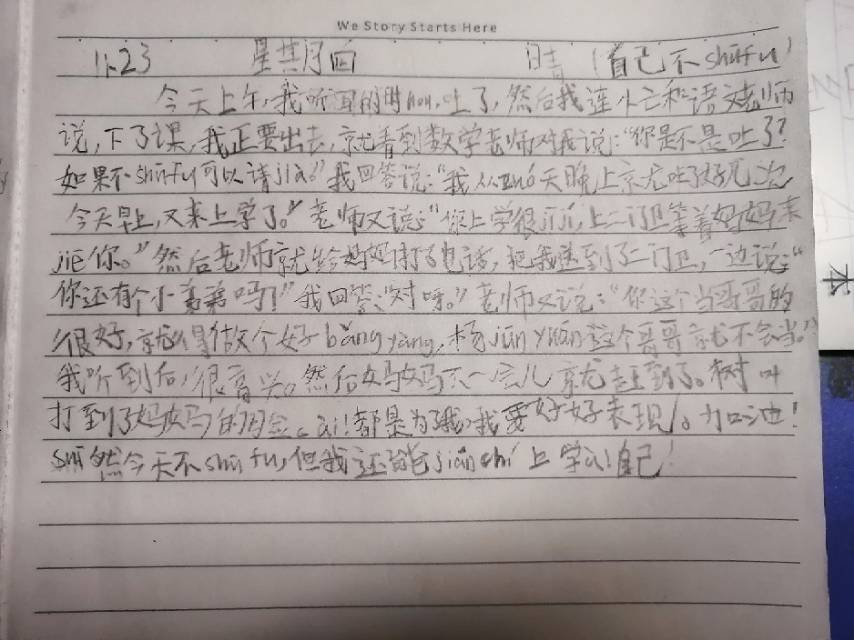 We Story Starts Here
11.23 星其月四 日青 (自己不shufu)
今天上午,我听耳的时hou,吐了,然后我连忙和语文老师
说,下了课,我正要出去,就看到数学老师对我说:“你是不是吐了?
如果不shufu可以请jia。”我回答说:“我从zuó天晚上就吐了好几次
今天早上,又来上学了。”老师又说:“你上学很jijí,上二门卫等着妈妈来
jiē你。”然后老师就给妈妈打了电话,把我送到了二门卫,一边说:“
你还有个小弟弟吗?”我回答:“对呀。”老师又说:“你这个当哥哥的
很好,就得做个好bǎng yàng,杨jùn yuán这个哥哥就不会当。”
我听到后,很高兴。然后妈妈不一会儿就赶到了。树叶
打到了妈妈的
都是为了我,我要好好表现。加油!
然今天不shū fu,但我还能jiān chí上学!自己!
本